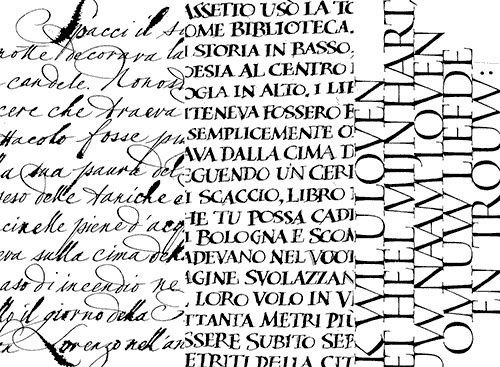 Spacci il s
notte decorava la
candele. Nonos
cere che traeva
tacolo fosse piu
la sua paura del
peso delle taniche e
cinelle piene d'acq
eva sulla cima dell
caso di incendio ne
llo il giorno della
n Lorenzo nell'an
ASSETTO USÒ LA TO
OME BIBLIOTECA.
I STORIA IN BASSO,
OESIA AL CENTRO
OGIA IN ALTO, I LIE
ITENEVA FOSSERO E
SEMPLICEMENTE O
AVA DALLA CIMA D
EGUENDO UN CERI
I SCACCIO, LIBRO
HE TU POSSA CADI
I BOLOGNA E SCON
ADEVANO NEL VUOT
AGINE SVOLAZZAN
LORO VOLO IN V
TTANTA METRI PIÙ
SSERE SUBITO SEP
ETRITI DELLA CIT
K WIL U LOVEN
EL HEEL MIJN HART,
UW NAAM LOVEN
OM UW LIEFDE
EN TROUW: